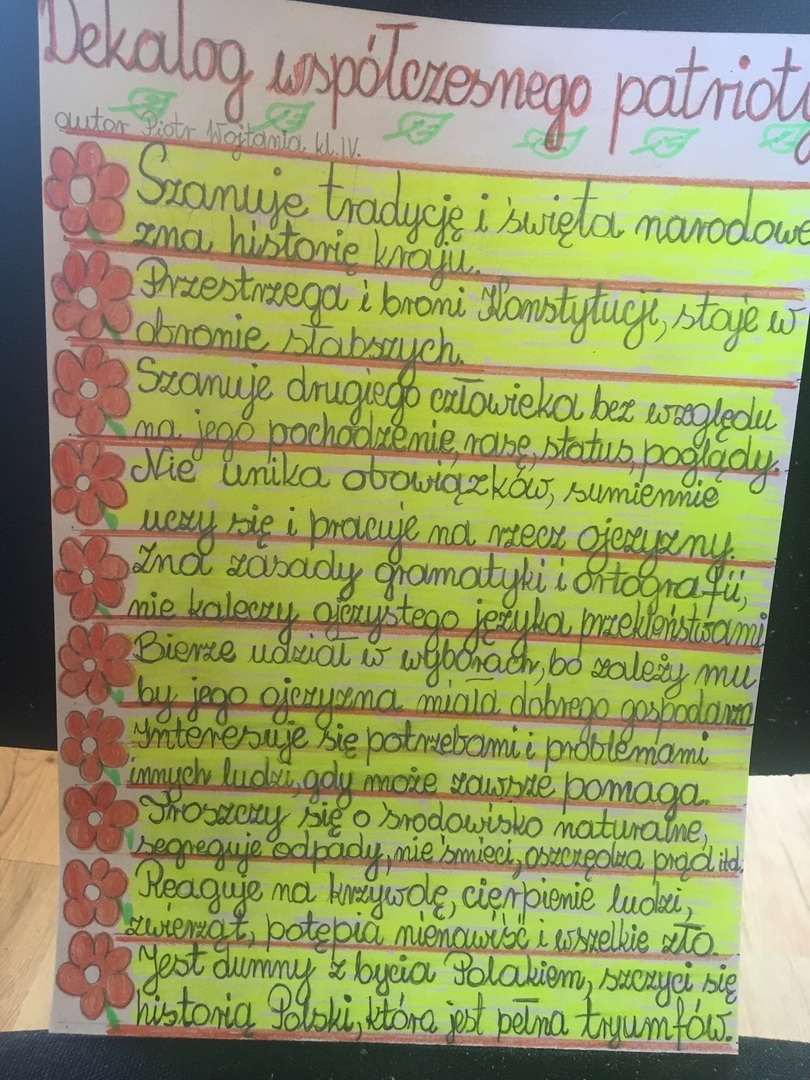 Dekalog współczesnego patrioty
autor Piotr Wojtania kl. IV.
Szanuje tradycję i święta narodowe
zna historię kraju.
Przestrzega i broni Konstytucji, staje w
obronie słabszych.
Szanuje drugiego człowieka bez względu
na jego pochodzenie, rasę, status, poglądy.
Nie unika obowiązków, sumiennie
uczy się i pracuje na rzecz ojczyzny.
Zna zasady gramatyki i ortografii,
nie kaleczy ojczystego języka przekleństwami
Bierze udział w wyborach, bo zależy mu
by jego ojczyzna miała dobrego gospodarza
Interesuje się potrzebami i problemami
innych ludzi, gdy może zawsze pomaga.
Troszczy się o środowisko naturalne,
segreguje odpady, nie śmieci, oszczędza prąd itd.
Reaguje na krzywdę, cierpienie ludzi,
zwierząt, potępia nienawiść i wszelkie zło.
Jest dumny z bycia Polakiem, szczyci się
historią Polski, która jest pełna tryumfów.